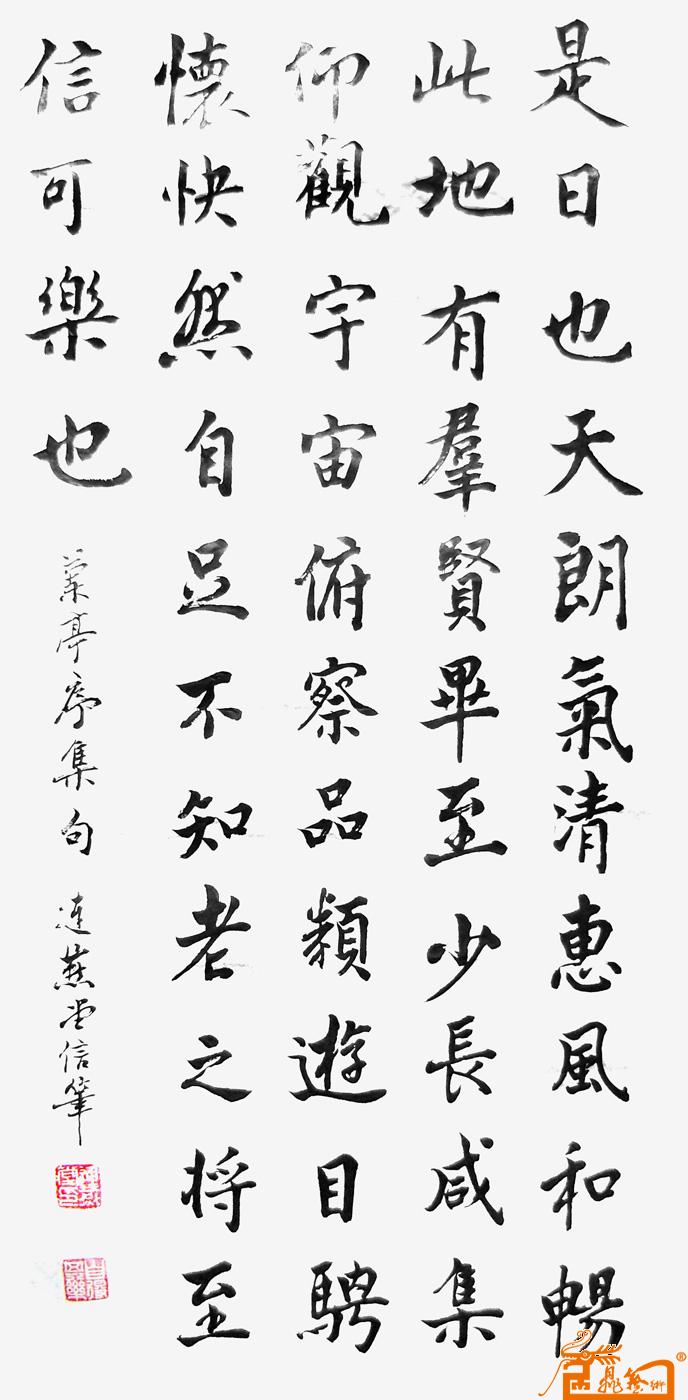 是日也天朗氣清惠風和暢
此地有羣賢畢至少長咸集
仰觀宇宙俯察品類遊目騁
懷快然自足不知老之將至
信可樂也
蘭亭序集句 燕堂信筆